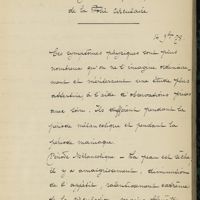 de la Folie circulaire
Ces symptômes physiques sont plus
nombreux qu'on ne l'imagine ordinaire-
ment et mériteraient une étude plus
attentive à l'aide d'observations prises
avec soin. Ils diffèrent pendant la
période mélancolique et pendant la
période maniaque.
Période Mélancolique - La peau est sèche
il y a amaigrissement, diminution
de l'appétit, ralentissement extrême
de la